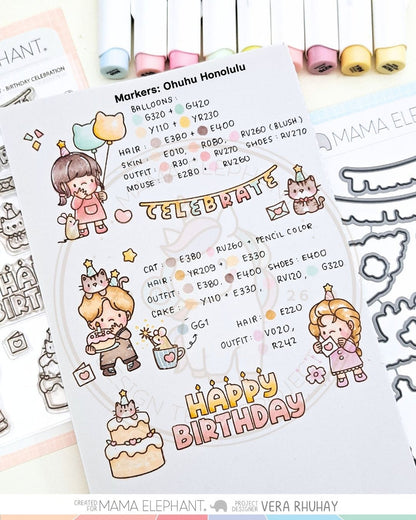 MAMA ELEPHANT.
BIRTHDAY CELEBRATION
Markers: Ohuhu Honolulu
BALLOONS:
G320 + G420
Y110 + YR230
HAIR: E380 + E400
SKIN: E010, R080, RV260 (BLUSH)
OUTFIT: R30 + RV170 SHOES: RV270
MOUSE: E280 + RV260
CELEBRATE
MAMA ELEPHANT
CAT: E380 RV260 + PENCIL COLOR
HAIR: YR209 + E330
OUTFIT: E380, E400 SHOES: E400
CAKE: Y110 + E330, RV120, G320
GG1
HAIR: E220
OUTFIT: V020,
R242
HAPPY
BIRTHDAY
CREATED FOR MAMA ELEPHANT. PROJECT DESIGNER VERA RHUHAY